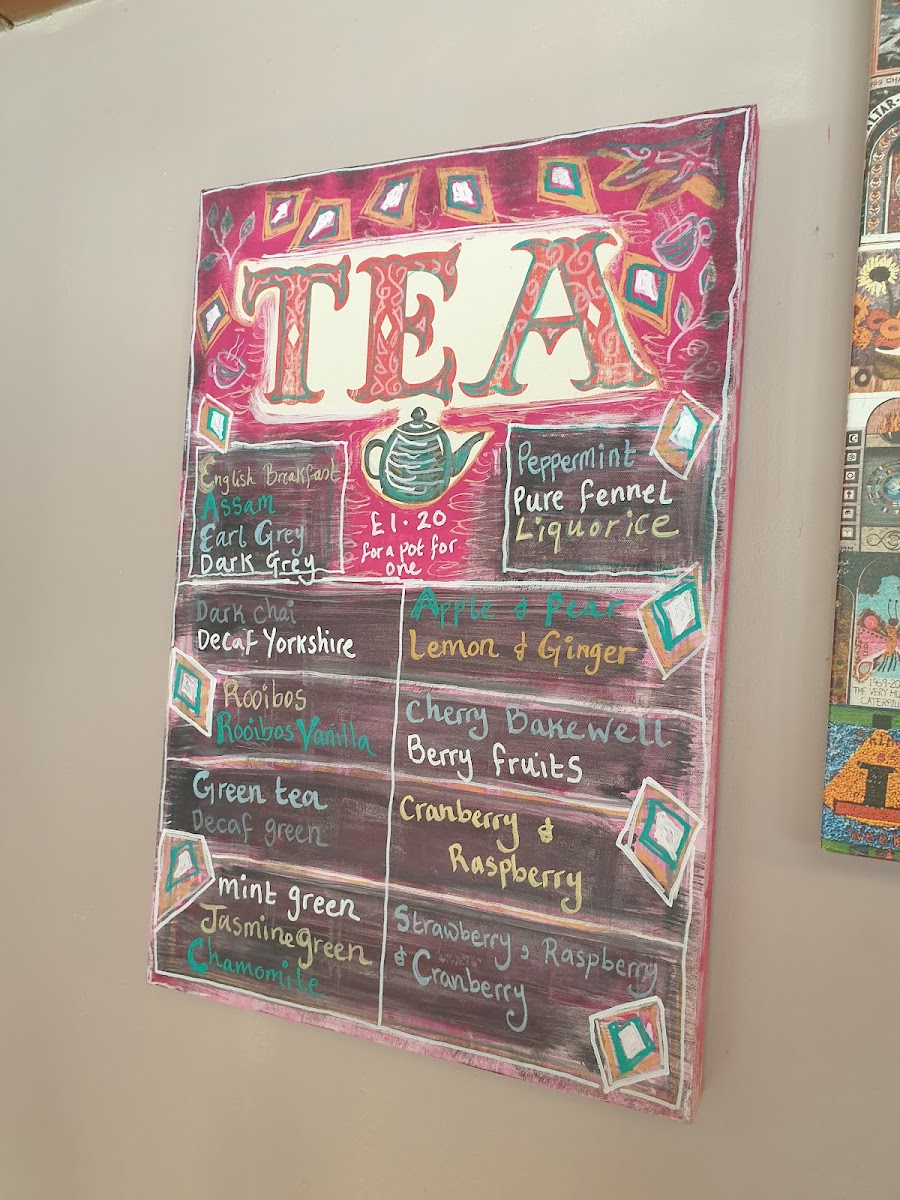 TEA
English Breakfast
Assam
Earl Grey
Dark Grey
£1.20
for a pot for
one
Peppermint
Pure fennel
Liquorice
Dark chai
Decaf Yorkshire
Rooibos
Rooibos Vanilla
Green tea
Decaf green
mint green
Jasmine green
Chamomile
Apple & Pear
Lemon & Ginger
Cherry Bakewell
Berry fruits
Cranberry &
Raspberry
Strawberry, Raspberry
& Cranberry
1969-20
THE VERY HU
CATERPIL